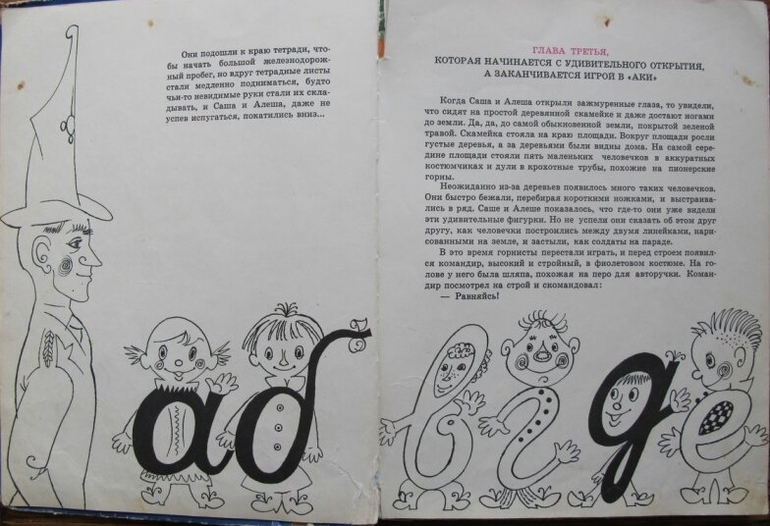 Они подошли к краю тетради, что-
бы начать большой железнодорож-
ный пробег, но вдруг тетрадные листы
стали медленно подниматься, будто
чьи-то невидимые руки стали их скла-
дывать, и Саша и Алеша, даже не
успев испугаться, покатились вниз...
а б
ГЛАВА ТРЕТЬЯ,
КОТОРАЯ НАЧИНАЕТСЯ С УДИВИТЕЛЬНОГО ОТКРЫТИЯ,
А ЗАКАНЧИВАЕТСЯ ИГРОЙ В «АКИ»
Когда Саша и Алеша открыли зажмуренные глаза, то увидели,
что сидят на простой деревянной скамейке и даже достают ногами
до земли. Да, да, до самой обыкновенной земли, покрытой зеленой
травой. Скамейка стояла на краю площади. Вокруг площади росли
густые деревья, а за деревьями были видны дома. На самой сере-
дине площади стояли пять маленьких человечков в аккуратных
костюмчиках и дули в крохотные трубы, похожие на пионерские
горны.
Неожиданно из-за деревьев появилось много таких человечков.
Они быстро бежали, перебирая короткими ножками, и выстраива-
лись в ряд. Саше и Алеше показалось, что где-то они уже видели
эти удивительные фигурки. Но не успели они сказать об этом друг
другу, как человечки построились между двумя линейками, нари-
сованными на земле, и застыли, как солдаты на параде.
В это время горнисты перестали играть, и перед строем появил-
ся командир, высокий и стройный, в фиолетовом костюме. На го-
лове у него была шляпа, похожая на перо для авторучки. Коман-
дир посмотрел на строй и скомандовал:
— Равняйсь!
в г д е